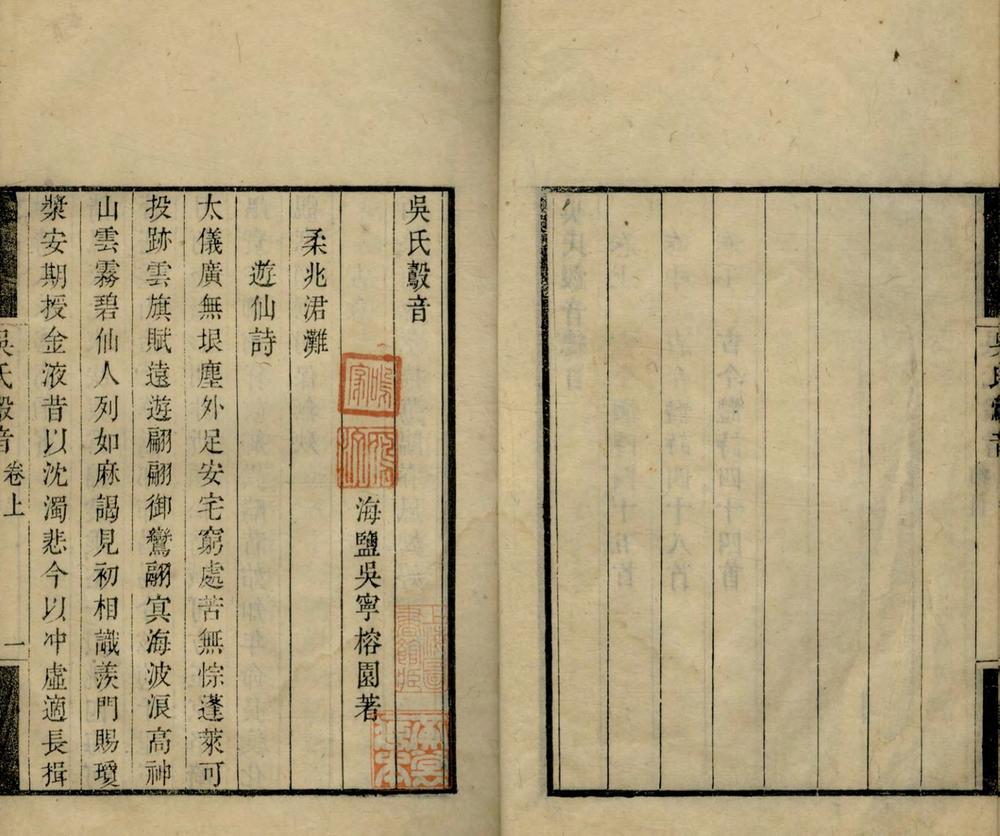 吳氏鷇音
海鹽吳寧榕園著
柔兆涒灘
遊仙詩
太儀廣無垠塵外足安宅窮處苦無悰蓬萊可
投跡雲旗賦遠遊翩翩御鸞翮溟海波浪高神
山雲霧碧仙人列如麻謁見初相識羨門賜瓊
漿安期授金液昔以沈濁悲今以冲虛適長揖
卷上
一